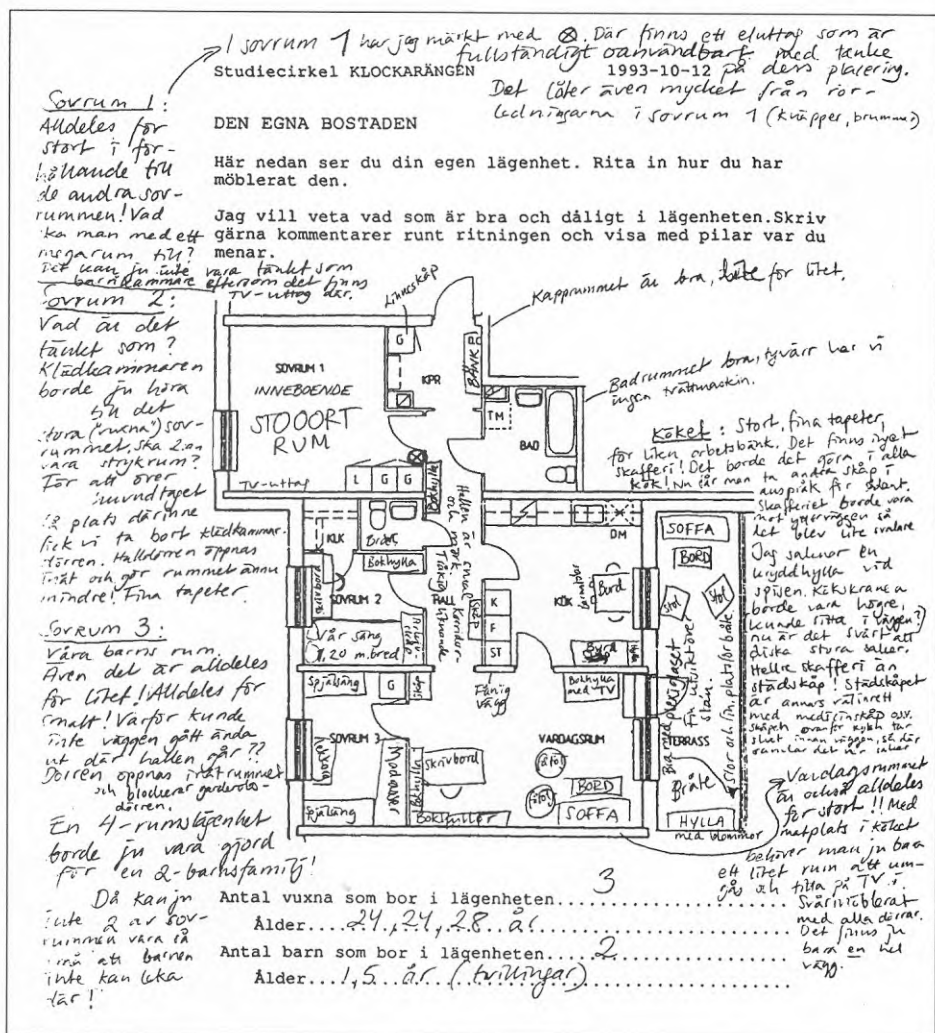 I sovrum 1 har jag märkt med ⊗. Där finns ett eluttag som är
fullständigt oanvändbart med tanke
på dess placering.
Det låter även mycket från rör-
ledningarna i sovrum 1 (knäpper, brummar)
Studiecirkel KLOCKARÄNGEN 1993-10-12
DEN EGNA BOSTADEN
Här nedan ser du din egen lägenhet. Rita in hur du har
möblerat den.
Jag vill veta vad som är bra och dåligt i lägenheten.Skriv
gärna kommentarer runt ritningen och visa med pilar var du
menar.
Sovrum 1:
Alldeles för
stort i för-
hållande till
de andra sov-
rummen! Vad
ska man med ett
megarum till?
Det kan ju inte vara tänkt som
barnkammare eftersom det finns
TV-uttag där.
Sovrum 2:
Vad är det
tänkt som?
Klädkammaren
borde ju höra
till det
stora ("vuxna") sov-
rummet, ska 2:an
vara strykrum?
För att över
huvudtaget
få plats därinne
fick vi ta bort klädkammar-
dörren. Halldörren öppnas
inåt och gör rummet ännu
mindre! Fina tapeter.
Sovrum 3:
Våra barns rum.
Även det är alldeles
för litet! Alldeles för
smalt! Varför kunde
inte väggen gått ända
ut där hallen går??
Dörren öppnas inåt rummet
och blockerar garderobs-
dörren.
En 4-rumslägenhet
borde ju vara gjord
för en 2-barnsfamilj!
Då kan ju
inte 2 av sov-
rummen vara så
små att barnen
inte kan leka
där!
Kapprummet är bra, lite för litet.
Badrummet bra, tyvärr har vi
ingen tvättmaskin.
Köket: Stort, fina tapeter,
för liten arbetsbänk. Det finns inget
skafferi! Det borde det göra i alla
kök! Nu får man ta andra skåp i
anspråk för sådant.
Skafferiet borde vara
mot ytterväggen så
det blev lite svalare
Jag saknar en
kryddhylla vid
spisen. Kökskranen
borde vara högre,
kunde sitta i väggen?)
nu är det svårt att
diska stora saker.
Hellre skafferi än
städskåp! Städskåpet
är annars välinrett
med medicinskåp osv.
skåpen ovanför kyl&h tar
slut innan väggen, så där
samlar det sig saker
Vardagsrummet
är också alldeles
för stort!! Med
matplats i köket
behöver man ju bara
ett litet rum att um-
gås och titta på TV i.
Svårmöblerat
med alla dörrar.
Det finns ju
bara en hel
vägg.
Linneskåp
G
KPR
BÄNK
SOVRUM 1
INNEBOENDE
STOOORT
RUM
TV-uttag
L G G
Bokhylla
TM
BAD
Hallen är smal
och mörk.
Tråkig Korridor-
liknande
KLK
Bokhylla
SOVRUM 2
HALL
Vår säng
1,20 m.bred
K
F
ST
DM
KÖK
Bord
Barnstolar
Bord
Spjälsäng
G
SOVRUM 3
Spjälsäng
Fånig
vägg
Bokhylla
med TV
VARDAGSRUM
Bokhylla
Skrivbord
Bokhyllor
Fåtölj
Fåtölj
BORD
SOFFA
SOFFA
BORD
Stol
Stol
Bra med plexiglaset
Fin utsikt över
stan.
TERRASS
Stor och fin, plats för både.
Bråte
HYLLA
med blommor
Antal vuxna som bor i lägenheten 3
Ålder....24, 24, 28 år
Antal barn som bor i lägenheten 2
Ålder....1,5 år (tvillingar)